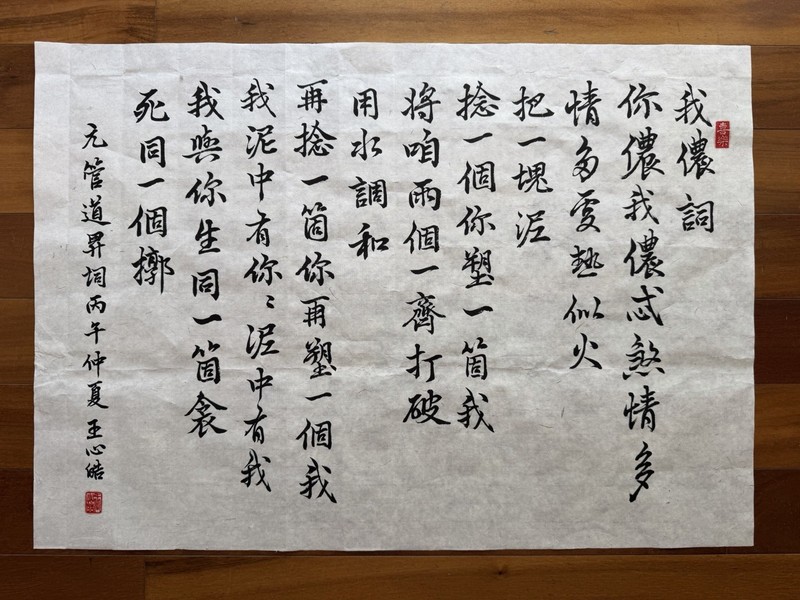 我儂詞
你儂我儂忒煞情多
情多處熱似火
把一塊泥
捻一個你塑一箇我
將咱兩個一齊打破
用水調和
再捻一箇你再塑一個我
我泥中有你〻泥中有我
我與你生同一箇衾
死同一個槨
元管道昇詞丙午仲夏王心皓